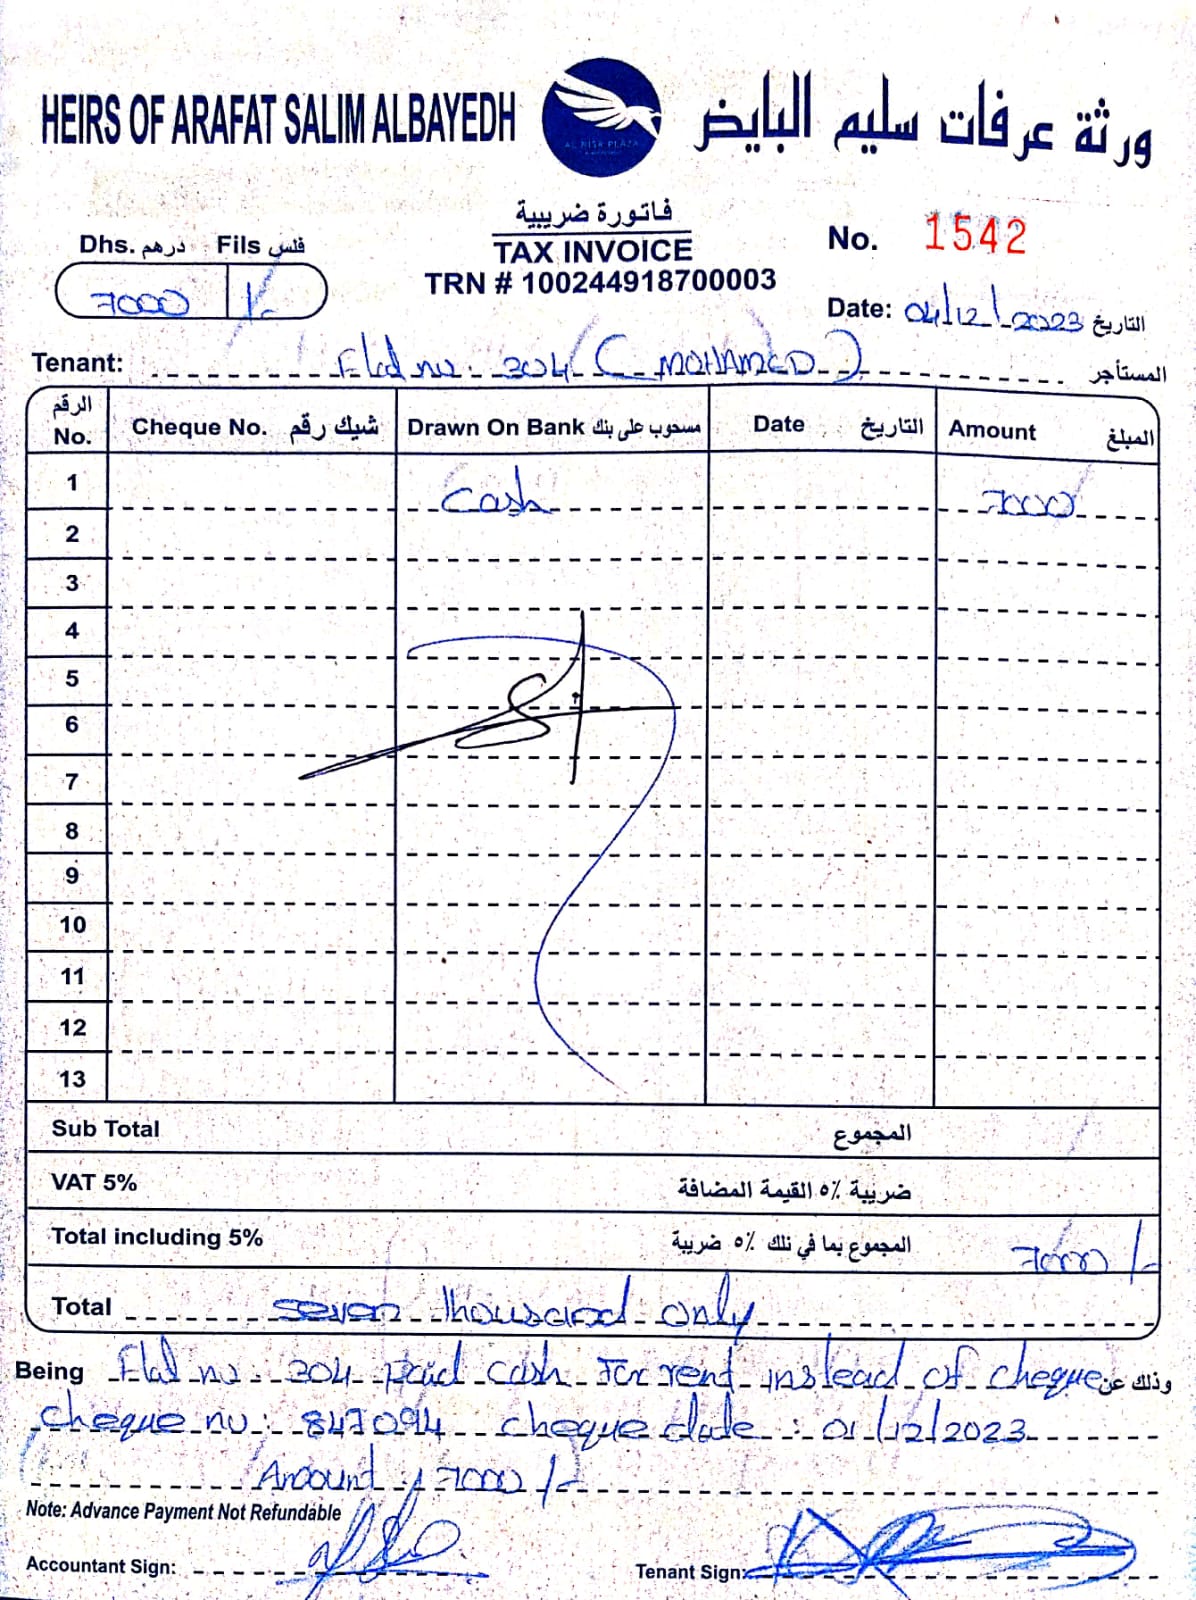 HEIRS OF ARAFAT SALIM ALBAYEDH
ورثة عرفات سليم البايض
AL NISR PLAZA
فاتورة ضريبية
TAX INVOICE
TRN # 100244918700003
Dhs. درهم Fils فلس
7000 /-
No. 1542
Date: 04/12/2023 التاريخ
Tenant: Flat no. 304 (MOHAMED) المستأجر
الرقم No. Cheque No. شيك رقم Drawn On Bank مسحوب على بنك Date التاريخ Amount المبلغ
1 Cash 7000
2
3
4
5
6
7
8
9
10
11
12
13
Sub Total المجموع
VAT 5% ضريبة ٥٪ القيمة المضافة
Total including 5% المجموع بما في ذلك ٥٪ ضريبة 7000/-
Total Seven thousand only
Being Flat no. 304 Paid cash For rent instead of cheque وذلك عن
cheque no: 847094 cheque date: 01/12/2023
Amount: 7000/-
Note: Advance Payment Not Refundable
Accountant Sign:
Tenant Sign: